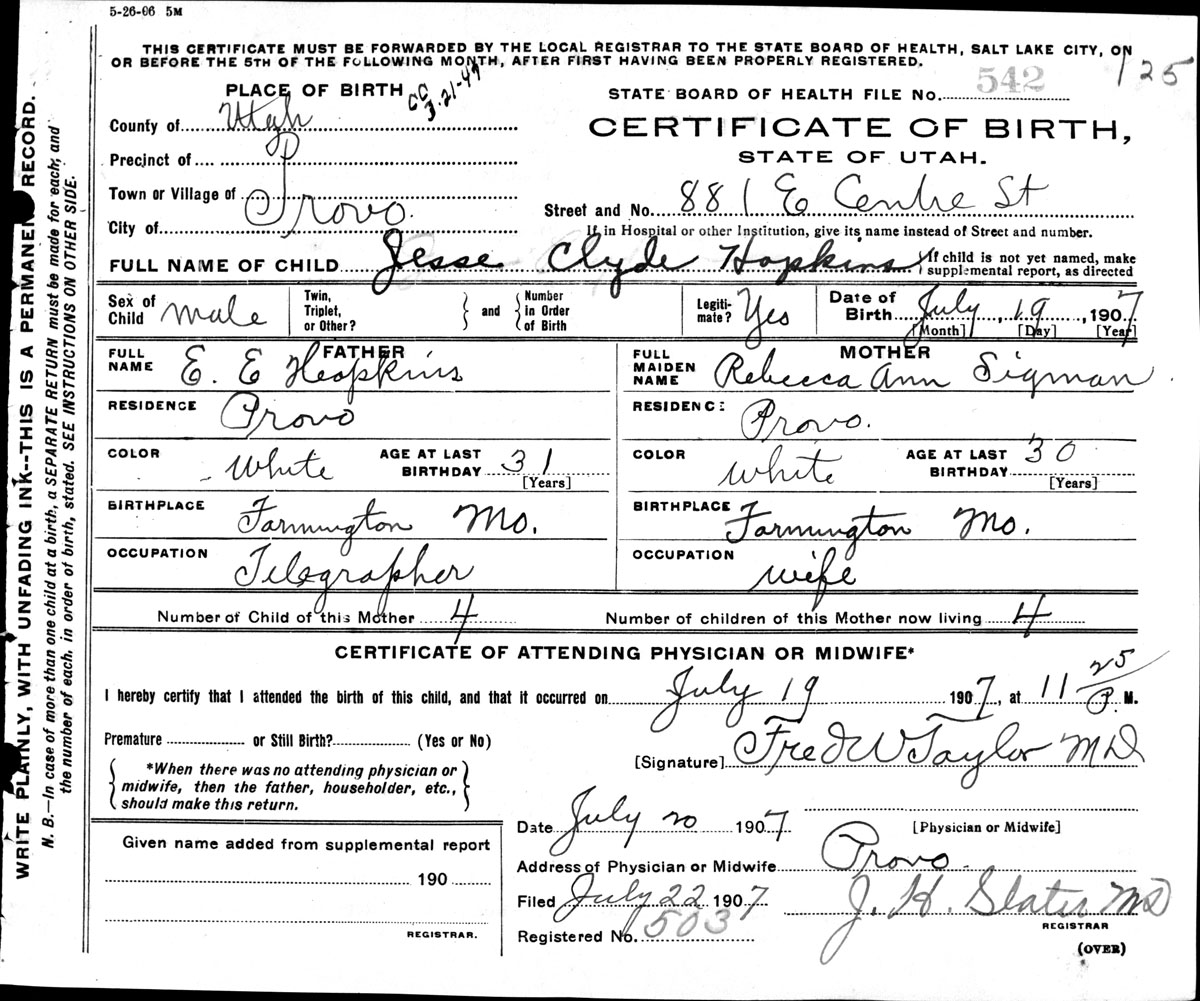 5-26-06 5M
THIS CERTIFICATE MUST BE FORWARDED BY THE LOCAL REGISTRAR TO THE STATE BOARD OF HEALTH, SALT LAKE CITY, ON
OR BEFORE THE 5TH OF THE FOLLOWING MONTH, AFTER FIRST HAVING BEEN PROPERLY REGISTERED.
125
PLACE OF BIRTH
CC 3-21-49
County of Utah
Precinct of
Town or Village of
City of Provo.
STATE BOARD OF HEALTH FILE No. 542
CERTIFICATE OF BIRTH,
STATE OF UTAH.
Street and No. 881 E Centre St
If in Hospital or other Institution, give its name instead of Street and number.
FULL NAME OF CHILD Jesse Clyde Hopkins { If child is not yet named, make
supplemental report, as directed
Sex of Child male Twin, Triplet, or Other? } and { Number in Order of Birth Legiti-mate? Yes Date of Birth July, 19, 1907
[Month] [Day] [Year]
FATHER
FULL NAME E. E Hopkins
RESIDENCE Provo
COLOR White AGE AT LAST BIRTHDAY 31
[Years]
BIRTHPLACE Farmington Mo.
OCCUPATION Telegrapher
MOTHER
FULL MAIDEN NAME Rebecca Ann Sigman
RESIDENCE Provo.
COLOR White AGE AT LAST BIRTHDAY 30
[Years]
BIRTHPLACE Farmington Mo.
OCCUPATION wife
Number of Child of this Mother 4 Number of children of this Mother now living 4
CERTIFICATE OF ATTENDING PHYSICIAN OR MIDWIFE*
I hereby certify that I attended the birth of this child, and that it occurred on July 19 1907, at 11 25 P. M.
Premature or Still Birth? (Yes or No)
*When there was no attending physician or
midwife, then the father, householder, etc.,
should make this return.
[Signature] Fred W Taylor MD
[Physician or Midwife]
Date July 20 1907
Address of Physician or Midwife Provo
Filed July 22 1907 J. H. Slater MD
REGISTRAR
Registered No. 503
(OVER)
Given name added from supplemental report
190
REGISTRAR.
WRITE PLAINLY, WITH UNFADING INK--THIS IS A PERMANENT RECORD.
N. B.—In case of more than one child at a birth, a SEPARATE RETURN must be made for each, and
the number of each, in order of birth, stated. SEE INSTRUCTIONS ON OTHER SIDE.